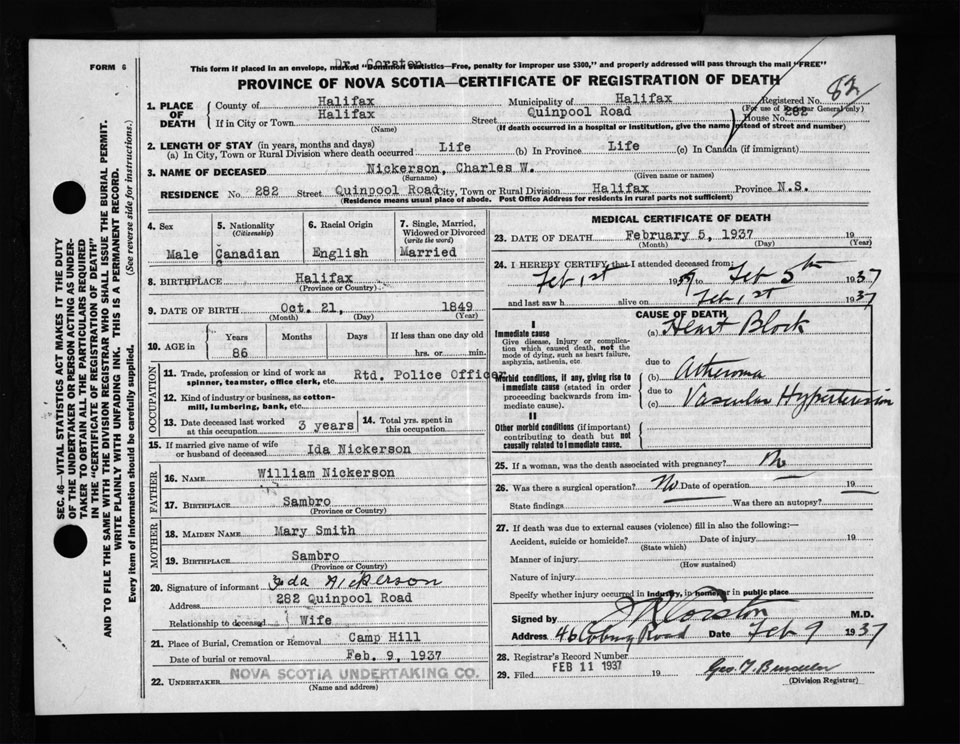 FORM 6
Dr. Corston
This form if placed in an envelope, marked "Dominion Statistics—Free, penalty for improper use $300," and properly addressed will pass through the mail "FREE"
PROVINCE OF NOVA SCOTIA—CERTIFICATE OF REGISTRATION OF DEATH
82
1. PLACE OF DEATH County of Halifax Municipality of Halifax Registered No.
(For use of Registrar General only)
If in City or Town Halifax Street Quinpool Road House No. 282
(Name) (If death occurred in a hospital or institution, give the name instead of street and number)
2. LENGTH OF STAY (in years, months and days)
(a) In City, Town or Rural Division where death occurred Life (b) In Province Life (c) In Canada (if immigrant)
3. NAME OF DECEASED Nickerson, Charles W.
(Surname) (Given name or names)
RESIDENCE No. 282 Street Quinpool Road City, Town or Rural Division Halifax Province N.S.
(Residence means usual place of abode. Post Office Address for residents in rural parts not sufficient)
4. Sex 5. Nationality (Citizenship) 6. Racial Origin 7. Single, Married, Widowed or Divorced (write the word)
Male Canadian English Married
8. BIRTHPLACE Halifax
(Province or Country)
9. DATE OF BIRTH Oct. 21, 1849
(Month) (Day) (Year)
10. AGE in Years Months Days If less than one day old
86 hrs. or min.
OCCUPATION
11. Trade, profession or kind of work as spinner, teamster, office clerk, etc. Rtd. Police Officer
12. Kind of industry or business, as cotton-mill, lumbering, bank, etc.
13. Date deceased last worked at this occupation 3 years 14. Total yrs. spent in this occupation
15. If married give name of wife or husband of deceased Ida Nickerson
FATHER
16. NAME William Nickerson
17. BIRTHPLACE Sambro
(Province or Country)
MOTHER
18. MAIDEN NAME Mary Smith
19. BIRTHPLACE Sambro
(Province or Country)
20. Signature of informant Ida Nickerson
Address 282 Quinpool Road
Relationship to deceased Wife
21. Place of Burial, Cremation or Removal Camp Hill
Date of burial or removal Feb. 9, 1937
22. UNDERTAKER NOVA SCOTIA UNDERTAKING CO.
(Name and address)
MEDICAL CERTIFICATE OF DEATH
23. DATE OF DEATH February 5, 1937 19
(Month) (Day) (Year)
24. I HEREBY CERTIFY that I attended deceased from:
Feb 1st 1937 to Feb 5th 1937
and last saw h alive on Feb 1st 1937
CAUSE OF DEATH
I
Immediate cause
Give disease, injury or complication which caused death, not the mode of dying, such as heart failure, asphyxia, asthenia, etc.
(a) Heart Block
due to
Morbid conditions, if any, giving rise to immediate cause (stated in order proceeding backwards from immediate cause).
(b) Atheroma
due to
(c) Vascular Hypertension
II
Other morbid conditions (if important) contributing to death but not causally related to immediate cause.
25. If a woman, was the death associated with pregnancy? No
26. Was there a surgical operation? No Date of operation 19
State findings Was there an autopsy?
27. If death was due to external causes (violence) fill in also the following:—
Accident, suicide or homicide? Date of injury 19
(State which)
Manner of injury
(How sustained)
Nature of injury
Specify whether injury occurred in industry, in home, or in public place
Signed by J R Corston M.D.
Address 46 Coburg Road Date Feb 9 1937
28. Registrar's Record Number
29. Filed FEB 11 1937 19
(Division Registrar)
SEC. 46—VITAL STATISTICS ACT MAKES IT THE DUTY
OF THE UNDERTAKER OR PERSON ACTING AS UNDER-
TAKER TO OBTAIN ALL THE PARTICULARS REQUIRED
IN THE "CERTIFICATE OF REGISTRATION OF DEATH"
AND TO FILE THE SAME WITH THE DIVISION REGISTRAR WHO SHALL ISSUE THE BURIAL PERMIT.
WRITE PLAINLY WITH UNFADING INK. THIS IS A PERMANENT RECORD.
Every item of information should be carefully supplied. (See reverse side for instructions.)